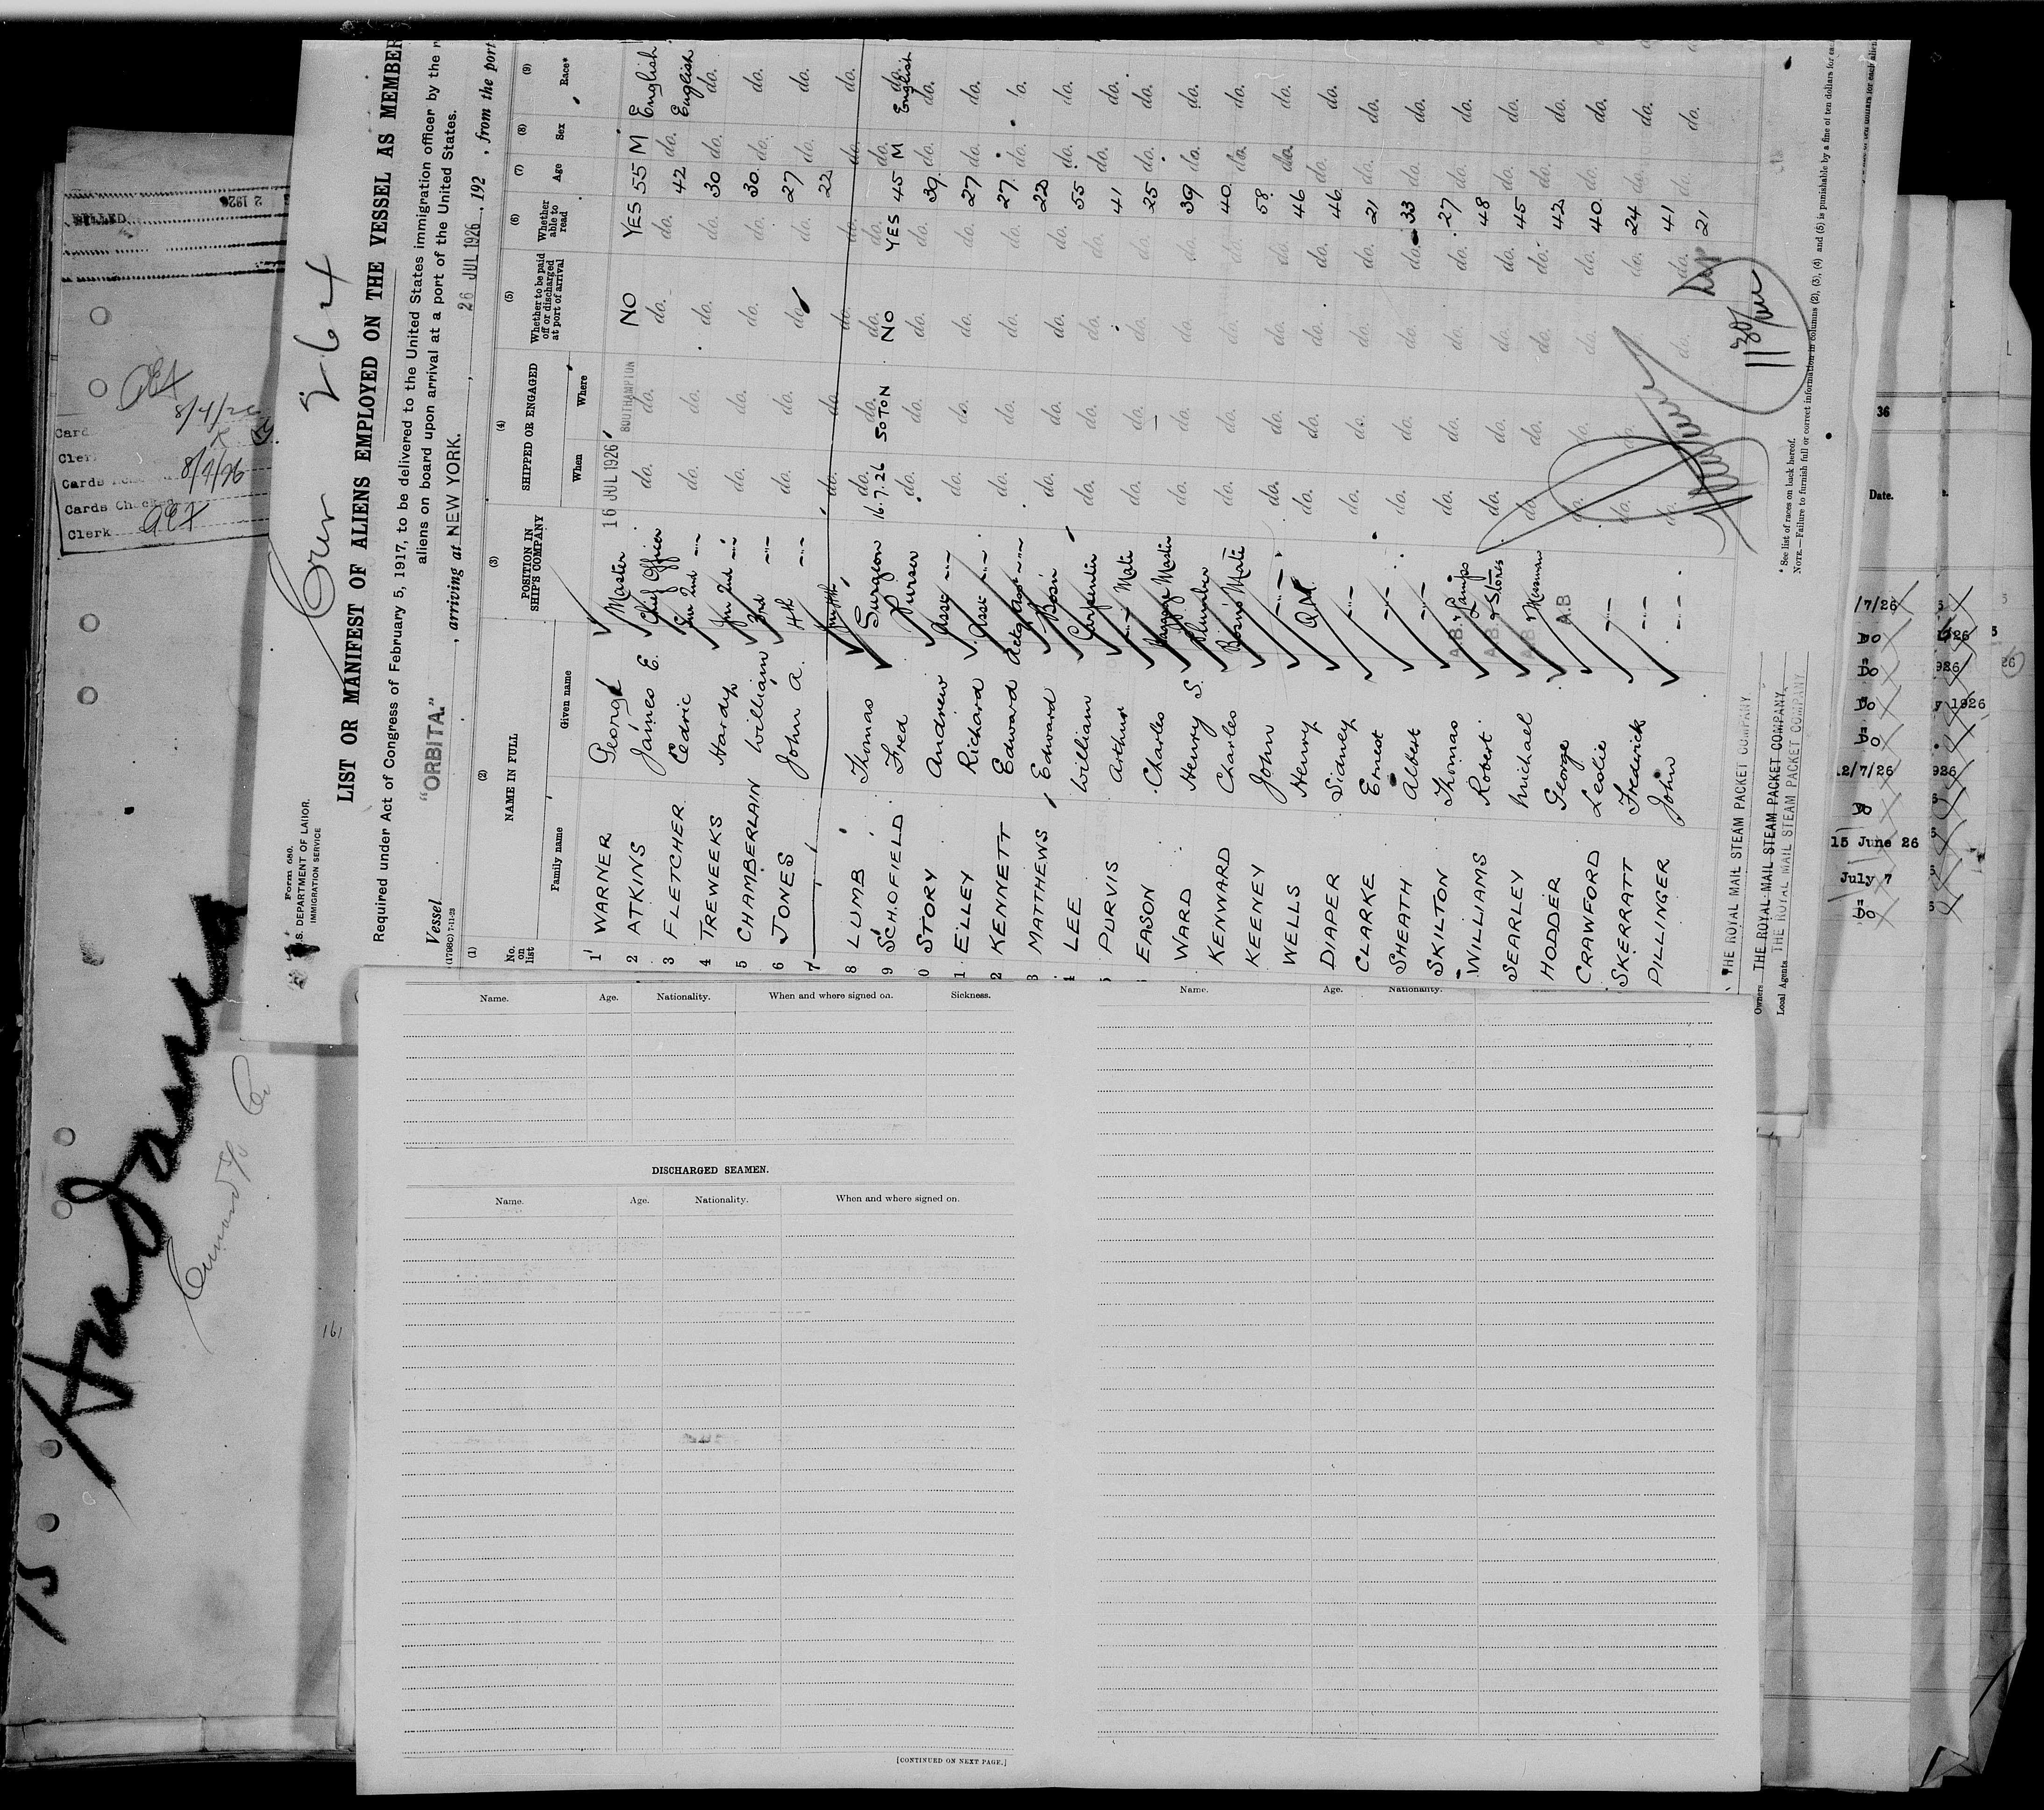 Crew 264
Form 680.
S. DEPARTMENT OF LABOR.
IMMIGRATION SERVICE
LIST OR MANIFEST OF ALIENS EMPLOYED ON THE VESSEL AS MEMBER
Required under Act of Congress of February 5, 1917, to be delivered to the United States immigration officer by the r
aliens on board upon arrival at a port of the United States.
Vessel "ORBITA." , arriving at NEW YORK. , 26 JUL 1926 , 192 , from the port
(1) (2) (3) (4) (5) (6) (7) (8) (9)
No. on list NAME IN FULL POSITION IN SHIP'S COMPANY SHIPPED OR ENGAGED Whether to be paid off or discharged at port of arrival Whether able to read Age Sex Race*
Family name Given name When Where
1 WARNER George Master 16 JUL 1926 SOUTHAMPTON NO YES 55 M English
2 ATKINS James E. Chief Officer do. do. do. do. 42 do. English
3 FLETCHER Cedric Sen 2nd -"- do. do. do. do. 30 do. do.
4 TREWEEKS Hardy Jun 2nd -"- do. do. do. do. 30 do. do.
5 CHAMBERLAIN William 3rd -"- do. do. do. do. 27 do. do.
6 JONES John A. 4th -"- do. do. do. do. 22 do. do.
7
8 LUMB Thomas Surgeon 16.7.26 SOTON NO YES 45 M English
9 SCHOFIELD Fred Purser do. do. do. do. 39 do. do.
0 STORY Andrew Asst -"- do. do. do. do. 27 do. do.
1 ELLEY Richard Asst -"- do. do. do. do. 27 do. do.
2 KENNETT Edward Actg Asst -"- do. do. do. do. 22 do. do.
3 MATTHEWS Edward Bosn do. do. do. do. 55 do. do.
4 LEE William Carpenter do. do. do. do. 41 do. do.
5 PURVIS Arthur -"- Mate do. do. do. do. 25 do. do.
EASON Charles Baggage Master do. do. do. do. 39 do. do.
WARD Henry S. Plumber do. do. do. do. 40 do. do.
KENWARD Charles Bosn's Mate do. do. do. do. 58 do. do.
KEENEY John -"- do. do. do. do. 46 do. do.
WELLS Henry Q.M. do. do. do. do. 46 do. do.
DIAPER Sidney -"- do. do. do. do. 21 do. do.
CLARKE Ernest -"- do. do. do. do. 33 do. do.
SHEATH Albert -"- do. do. do. do. 27 do. do.
SKILTON Thomas A.B. & Lamps do. do. do. do. 48 do. do.
WILLIAMS Robert A.B. & Stores do. do. do. do. 45 do. do.
SEARLEY Michael A.B. & Messman do. do. do. do. 42 do. do.
HODDER George A.B do. do. do. do. 40 do. do.
CRAWFORD Leslie -"- do. do. do. do. 24 do. do.
SKERRATT Frederick -"- do. do. do. do. 41 do. do.
PILLINGER John -"- 21
Owners THE ROYAL MAIL STEAM PACKET COMPANY
THE ROYAL MAIL STEAM PACKET COMPANY.
Local Agents THE ROYAL MAIL STEAM PACKET COMPANY.
* See list of races on back hereof.
NOTE.—Failure to furnish full or correct information in columns (2), (3), (4) and (5) is punishable by a fine of ten dollars for ea
Name. Age. Nationality. When and where signed on. Sickness.
DISCHARGED SEAMEN.
Name. Age. Nationality. When and where signed on.
[CONTINUED ON NEXT PAGE.]
Name. Age. Nationality.
15
161
Card
8/4/26
Cards
Cards Checked
Clerk
36
Date.
/7/26
Do
Do
Do
Do
12/7/26
Do
15 June 26
July 7
Do